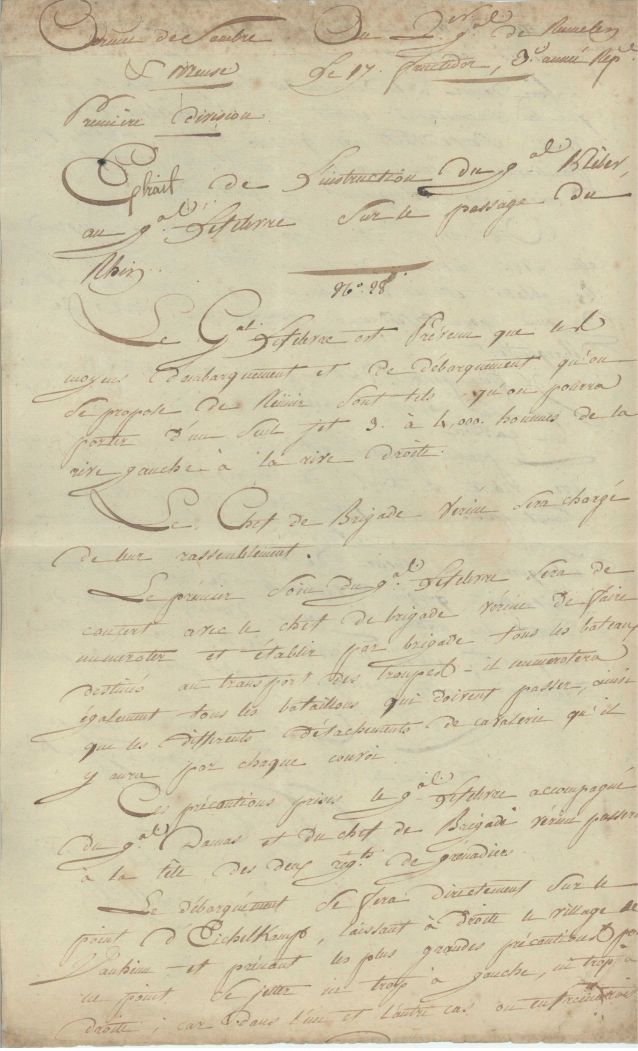 Armée de Sambre Du Q.er g.al de Rumelen
& Meuse Le 17. fructidor, 3.e année Rép.e
Premiere Division
Extrait de L'instruction du g.al Kléber,
au g.al Lefebvre Sur le passage du
Rhin.
N.o 28
Le G.al Lefebvre est Prévenu que les
moyens d'embarquement et de débarquement qu'on
se propose de Réunir sont tels qu'on pourra
porter d'un seul jet 3. à 4,000. hommes de la
rive gauche à la rive droite.
Le Chef de Brigade Vérine sera chargé
de leur rassemblement.
Le prémier soin du g.al Lefebvre sera de
concert avec le chef de brigade vérine de faire
numeroter et établir par brigade tous les bateaux
destinés au transport des troupes - il numerotera
également tous les bataillons qui doivent passer, ainsi
que les differents détachements de cavalerie qu'il
y aura par chaque convoi.
Ces précautions prises le g.al Lefebvre accompagné
du g.al Damas et du chef de Brigade vérine passera
à la tête des deux reg.ts de grénadiers
Le débarquement se fera directement sur le
point d'Eichelkamp, laissant à droite le village de
et prénant les plus grandes précautions po
ne point se jetter ni trop à gauche, ni trop à
droite ; car dans l'un et l'autre cas on